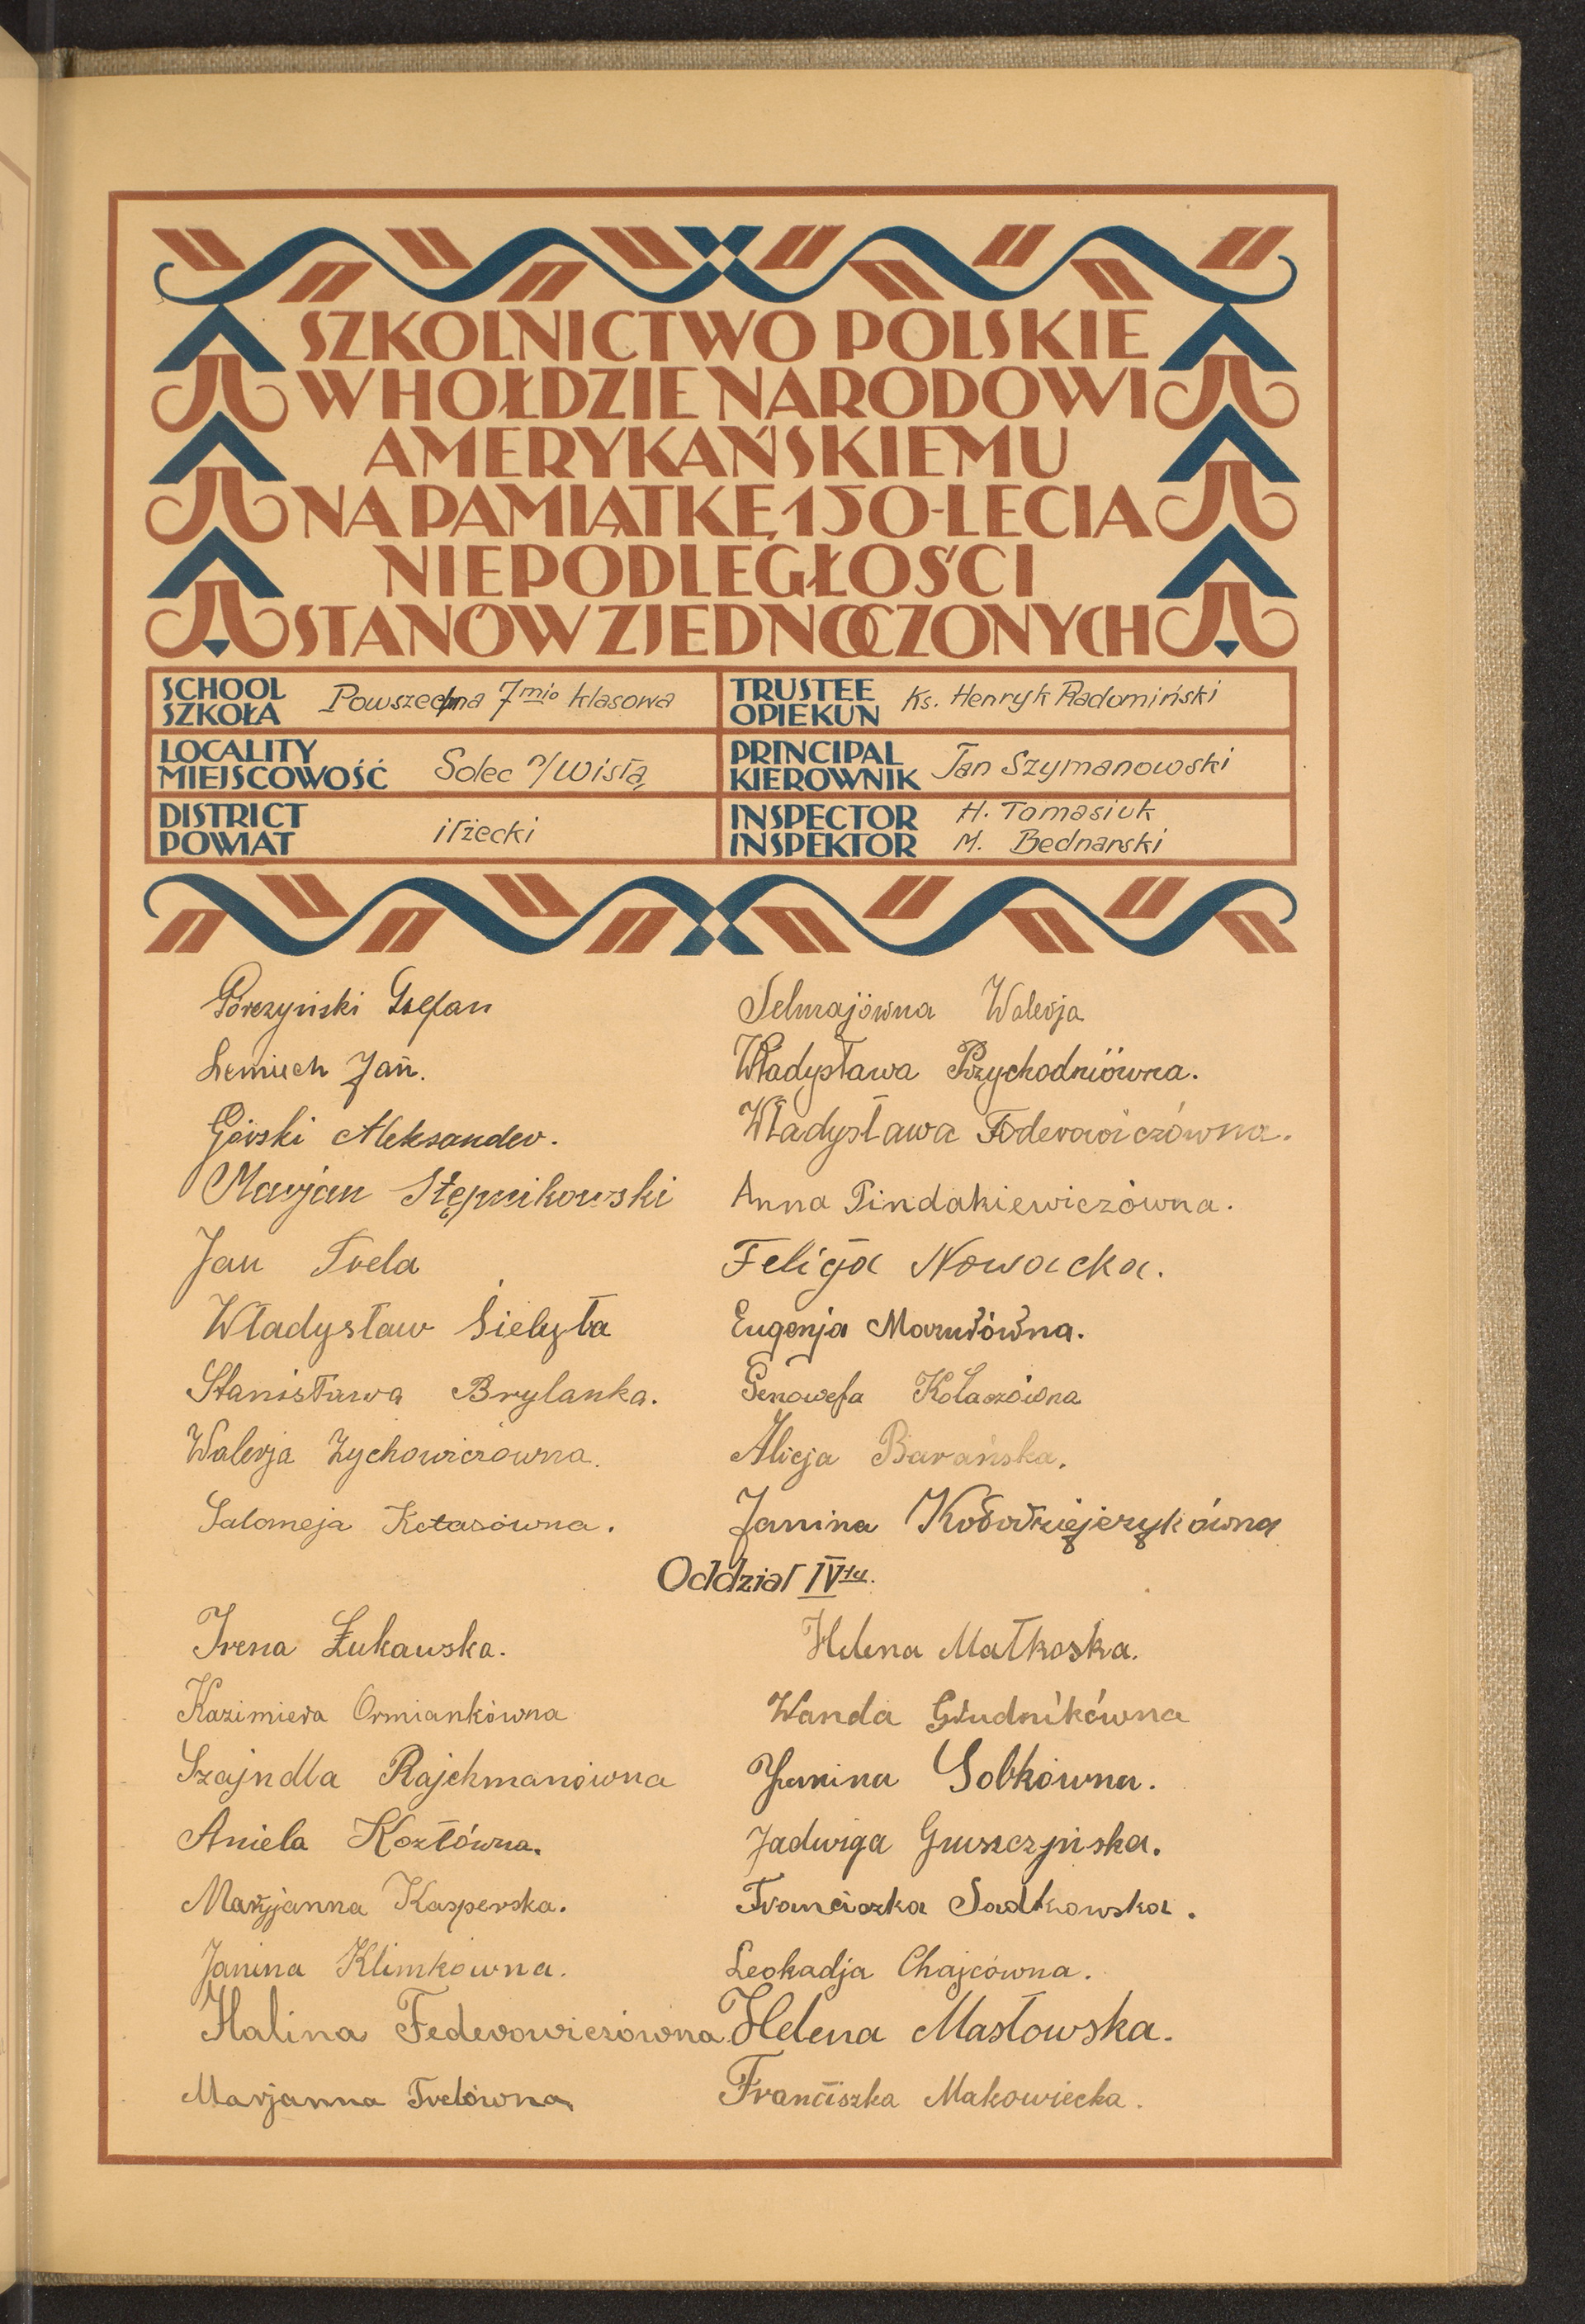 SZKOLNICTWO POLSKIE
W HOŁDZIE NARODOWI
AMERYKAŃSKIEMU
NA PAMIĄTKĘ 150-LECIA
NIEPODLEGŁOŚCI
STANÓW ZJEDNOCZONYCH
SCHOOL
SZKOŁA
Powszechna 7mio klasowa
TRUSTEE
OPIEKUN
Ks. Henryk Radomiński
LOCALITY
MIEJSCOWOŚĆ
Solec n/Wisłą
PRINCIPAL
KIEROWNIK
Jan Szymanowski
DISTRICT
POWIAT
iłżecki
INSPECTOR
INSPEKTOR
H. Tomasiuk
M. Bednarski
Górczyński Stefan
Lemiech Jan.
Górski Aleksander.
Marjan Stępnikowski
Jan Trela
Władysław Siełyta
Stanisława Brylanka.
Walerja Zychowiczówna.
Salomeja Kotasówna.
Selmajówna Walerja
Władysława Przychodniówna.
Władysława Federowiczówna.
Anna Pindakiewiczówna.
Felicja Nowacka.
Eugenja Mazurówna.
Genowefa Kołaczówna
Alicja Barańska.
Janina Kołodziejczykówna
Oddział IVty.
Irena Żukawska.
Kazimiera Ormiankówna
Szajndla Rajchmanówna
Aniela Kozłówna.
Marjanna Kasperska.
Janina Klimkówna.
Halina Federowiczówna
Marjanna Trelówna
Helena Małkoska.
Wanda Głudnikówna
Janina Sobkówna.
Jadwiga Gruszczyńska.
Franciszka Sadkowska.
Leokadja Chajcówna.
Helena Masłowska.
Franciszka Makowiecka.